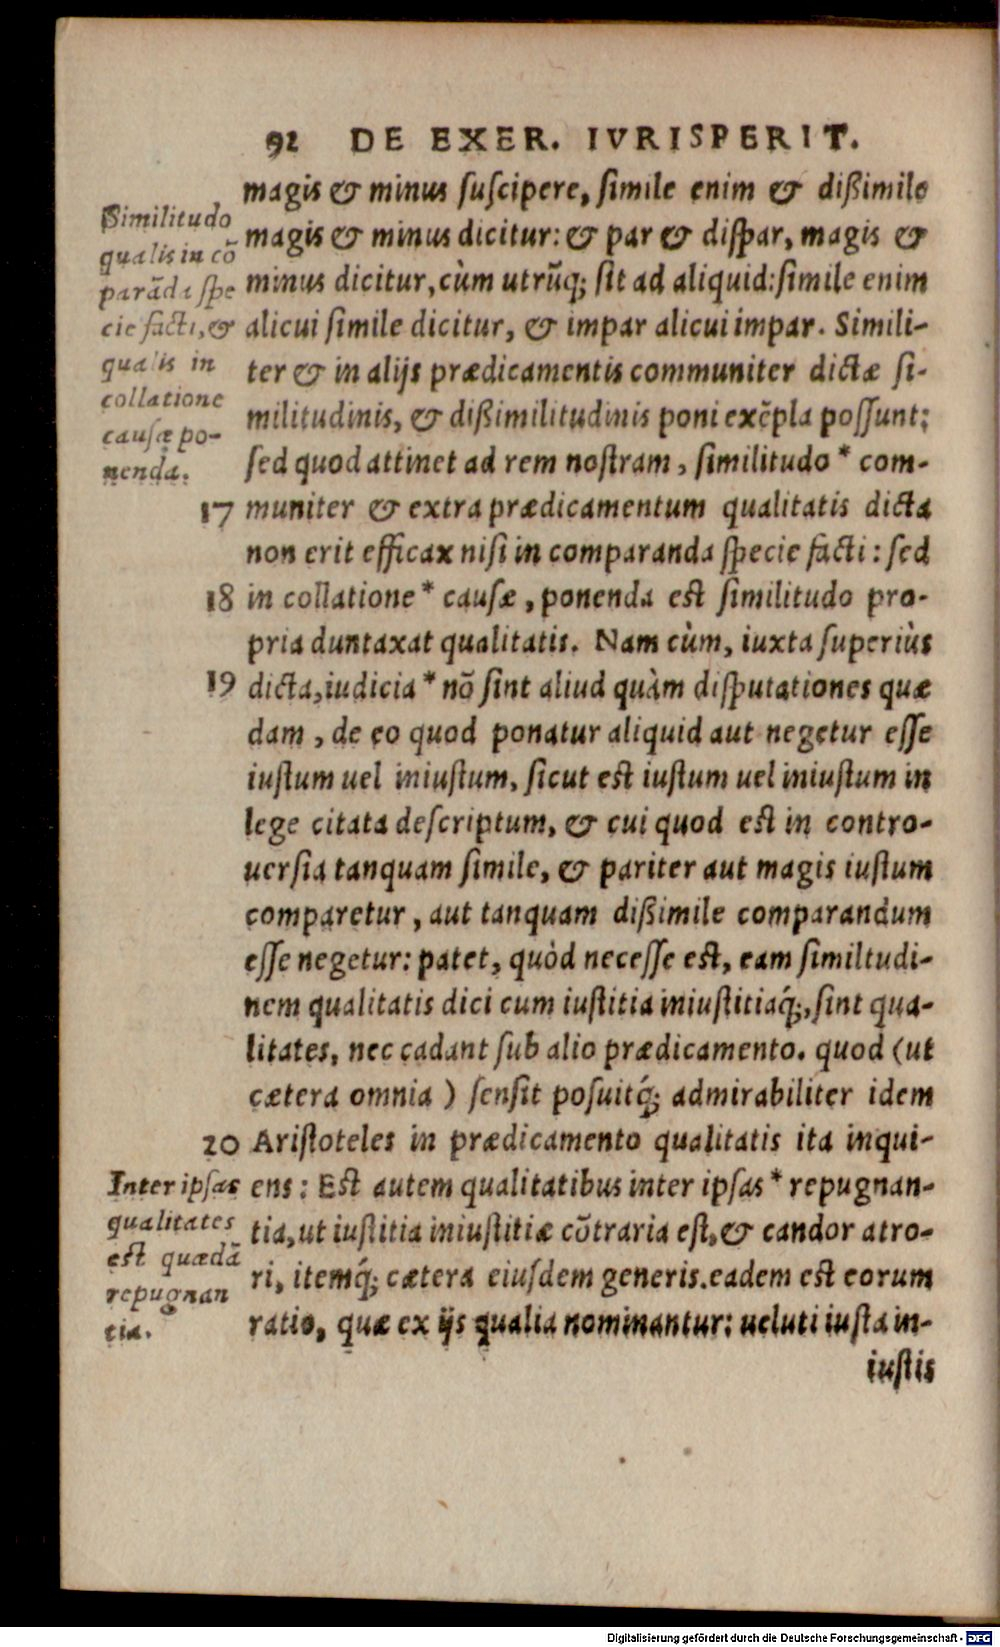 92 DE EXER. IVRISPERIT.
magis & minus suscipere, simile enim & dißimile
magis & minus dicitur: & par & dispar, magis &
minus dicitur, cùm utrũq; sit ad aliquid: simile enim
alicui simile dicitur, & impar alicui impar. Simili-
ter & in alijs prædicamentis communiter dictæ si-
militudinis, & dißimilitudinis poni exẽpla possunt:
sed quod attinet ad rem nostram, similitudo * com-
17 muniter & extra prædicamentum qualitatis dicta
non erit efficax nisi in comparanda specie facti: sed
18 in collatione * causæ, ponenda est similitudo pro-
pria duntaxat qualitatis. Nam cùm, iuxta superiùs
19 dicta, iudicia * nõ sint aliud quàm disputationes quæ
dam, de eo quod ponatur aliquid aut negetur esse
iustum uel iniustum, sicut est iustum uel iniustum in
lege citata descriptum, & cui quod est in contro-
uersia tanquam simile, & pariter aut magis iustum
comparetur, aut tanquam dißimile comparandum
esse negetur: patet, quòd necesse est, eam similtudi-
nem qualitatis dici cum iustitia iniustitiaq́;, sint qua-
litates, nec cadant sub alio prædicamento. quod (ut
cætera omnia) sensit posuitq́; admirabiliter idem
20 Aristoteles in prædicamento qualitatis ita inqui-
ens: Est autem qualitatibus inter ipsas * repugnan-
tia, ut iustitia iniustitiæ cõtraria est, & candor atro-
ri, itemq́; cætera eiusdem generis. eadem est eorum
ratio, quæ ex ijs qualia nominantur: ueluti iusta in-
iustis
Similitudo
qualis in cõ
parãda spe
cie facti, &
qualis in
collatione
causæ po-
nenda.
Inter ipsas
qualitates
est quædã
repugnan
tia.
Digitalisierung gefördert durch die Deutsche Forschungsgemeinschaft - DFG